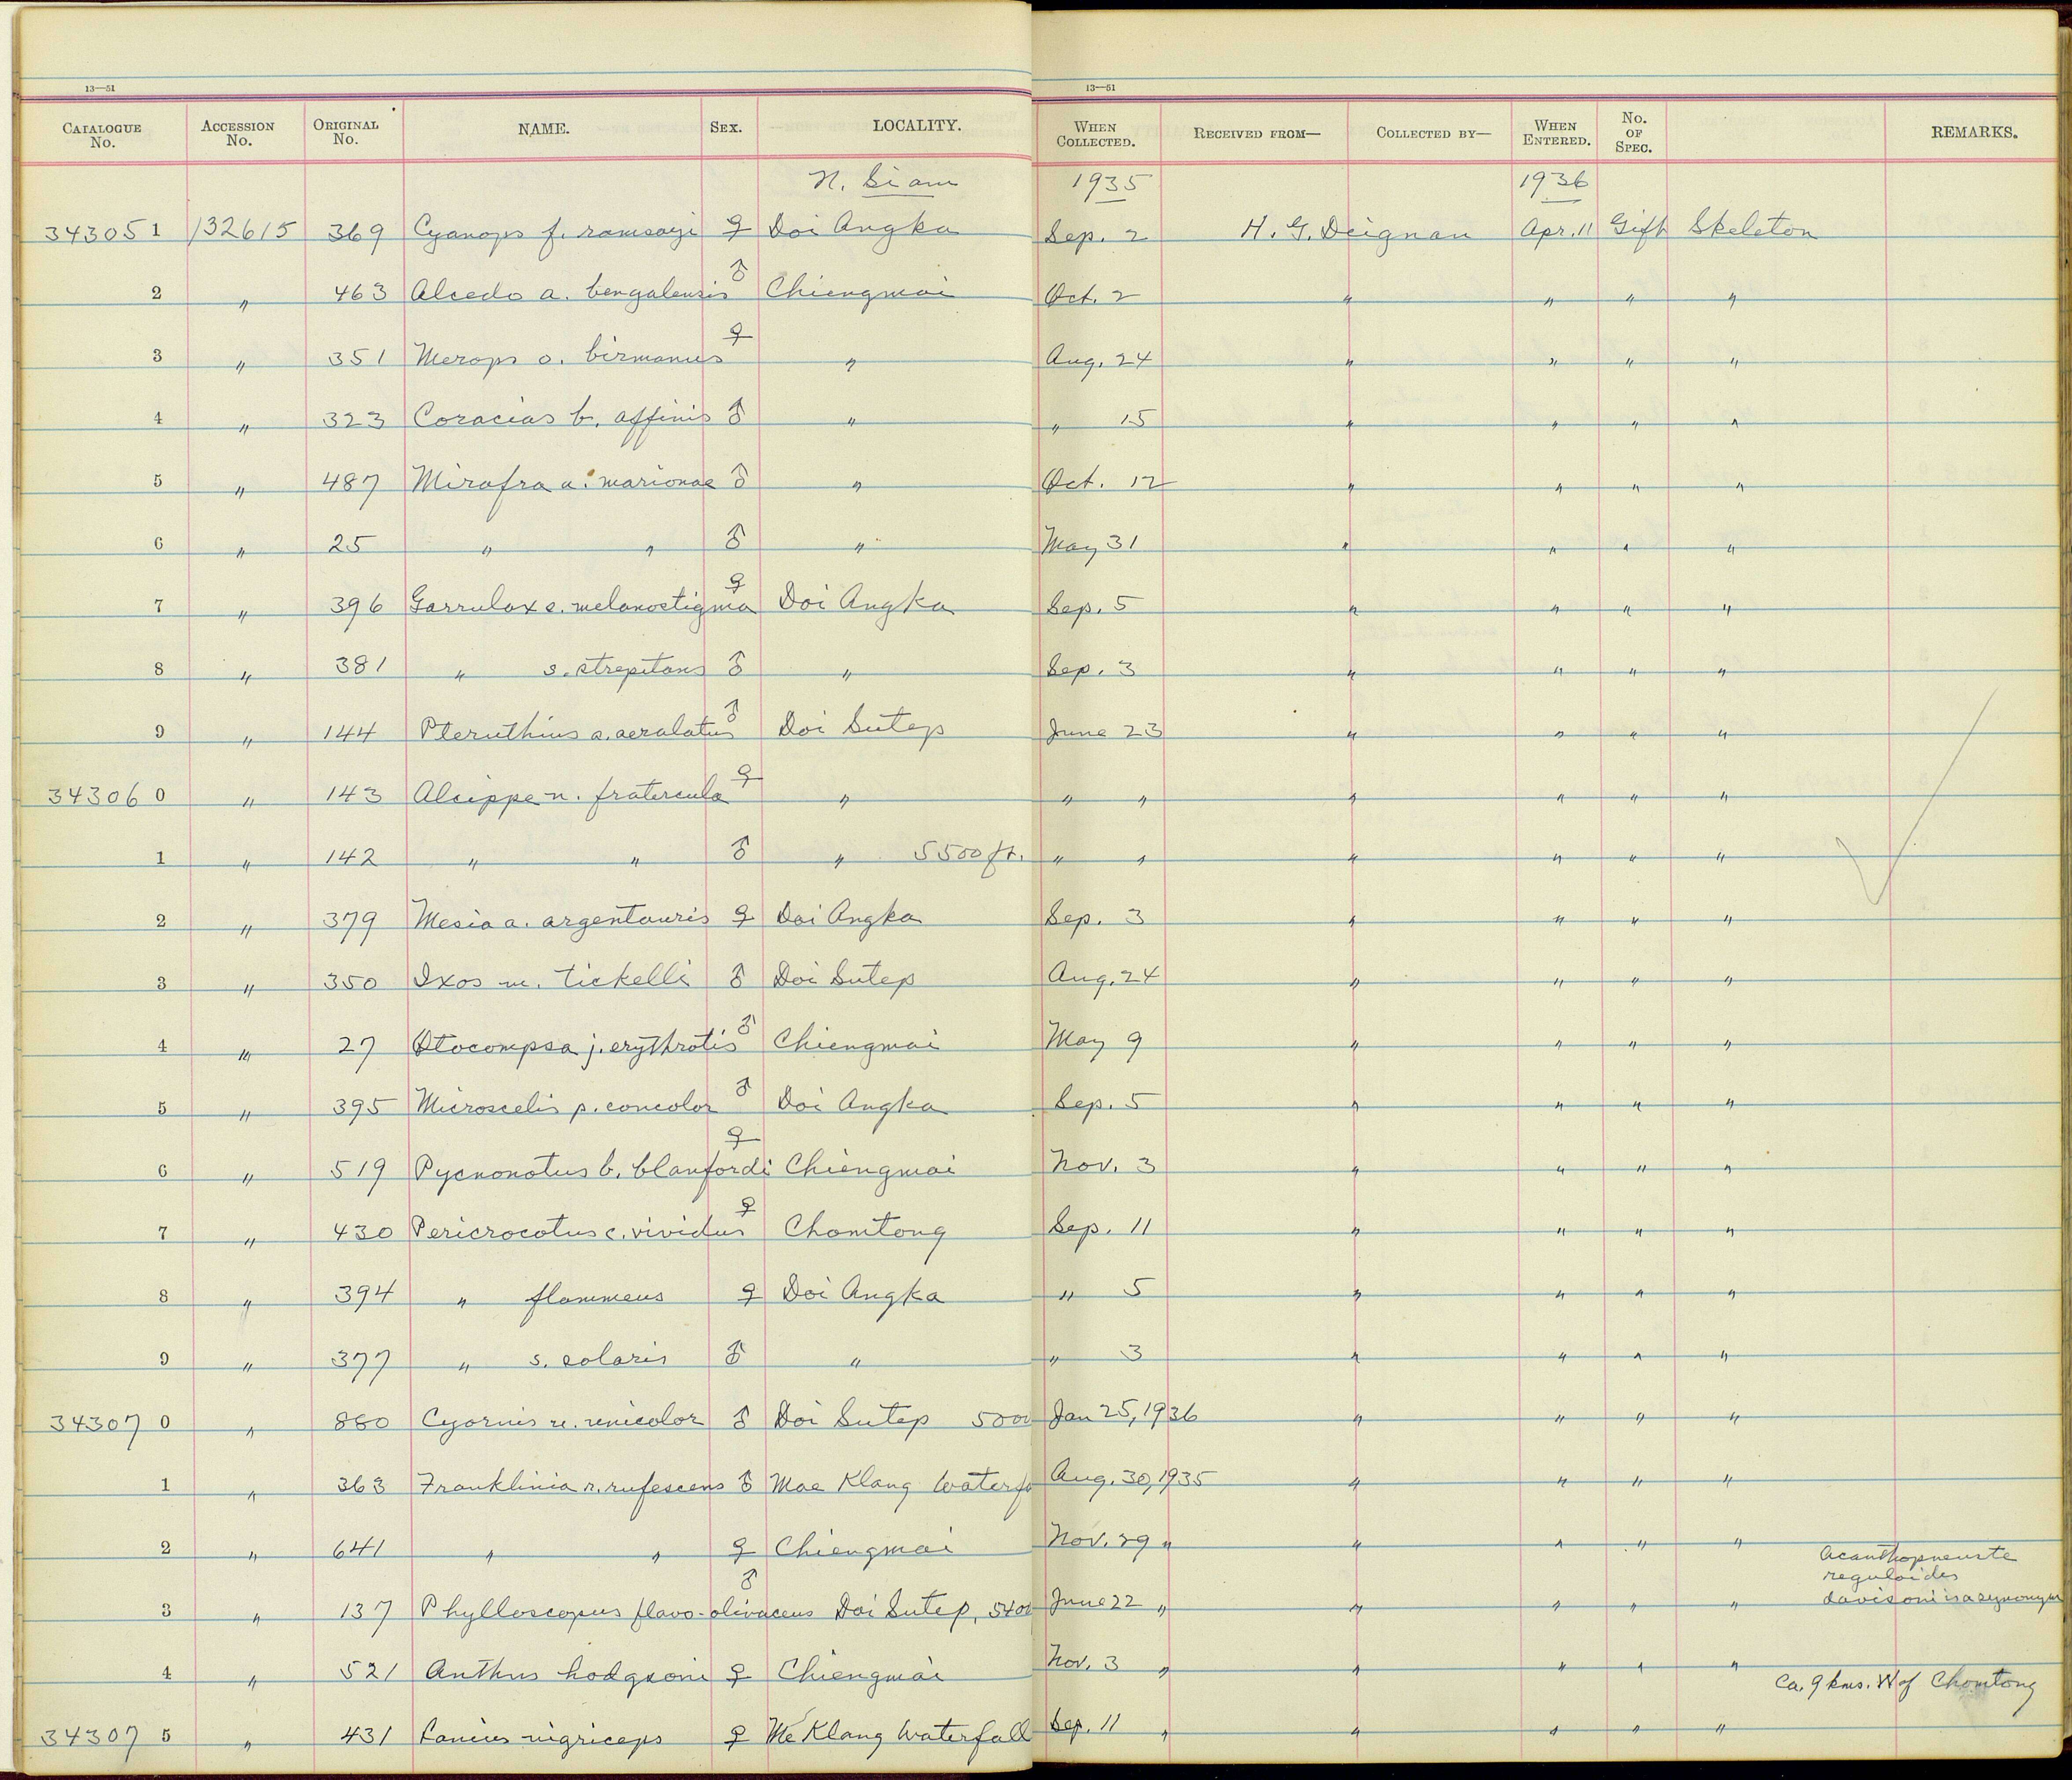 13—51 13—51
CATALOGUE No. ACCESSION No. ORIGINAL No. NAME. SEX. LOCALITY. WHEN COLLECTED. RECEIVED FROM— COLLECTED BY— WHEN ENTERED. No. OF SPEC. REMARKS.
N. Siam 1935 1936
343051 132615 369 Cyanops f. ramsayi ♀ Doi Angka Sep. 2 H. G. Deignan Apr. 11 Gift Skeleton
2 " 463 Alcedo a. bengalensis ♂ Chiengmai Oct. 2 " " " "
3 " 351 Merops o. birmanus ♀ " Aug. 24 " " " "
4 " 323 Coracias b. affinis ♂ " " 15 " " " "
5 " 487 Mirafra a. marionae ♂ " Oct. 12 " " " "
6 " 25 " " ♂ " May 31 " " " "
7 " 396 Garrulax e. melanostigma ♀ Doi Angka Sep. 5 " " " "
8 " 381 " s. strepitans ♂ " Sep. 3 " " " "
9 " 144 Pteruthius a. aeralatus ♂ Doi Sutep June 23 " " " "
343060 " 143 Alcippe n. fratercula ♀ " " " " " " "
1 " 142 " " ♂ " 5500 ft. " " " " " "
2 " 379 Mesia a. argentauris ♀ Doi Angka Sep. 3 " " " "
3 " 350 Ixos m. tickelli ♂ Doi Sutep Aug. 24 " " " "
4 " 27 Otocompsa j. erythrotis ♂ Chiengmai May 9 " " " "
5 " 395 Microscelis p. concolor ♂ Doi Angka Sep. 5 " " " "
6 " 519 Pycnonotus b. blanfordi ♀ Chiengmai Nov. 3 " " " "
7 " 430 Pericrocotus c. vividus ♀ Chomtong Sep. 11 " " " "
8 " 394 " flammeus ♀ Doi Angka " 5 " " " "
9 " 377 " s. solaris ♂ " " 3 " " " "
343070 " 880 Cyornis u. unicolor ♂ Doi Sutep 5000 Jan 25, 1936 " " " "
1 " 363 Franklinia r. rufescens ♂ Mae Klang Waterfa Aug. 30, 1935 " " " "
2 " 641 " " ♀ Chiengmai Nov. 29 " " " " "
3 " 137 Phylloscopus flavo-olivaceus ♂ Doi Sutep, 5400 June 22 " " " " " Acanthopneuste
reguloides
davisoni is a synonym
4 " 521 Anthus hodgsoni ♀ Chiengmai Nov. 3 " " " " "
343075 " 431 Lanius nigriceps ♀ Me Klang Waterfall Sep. 11 " " " " " Ca. 9 kms. W of Chomtong